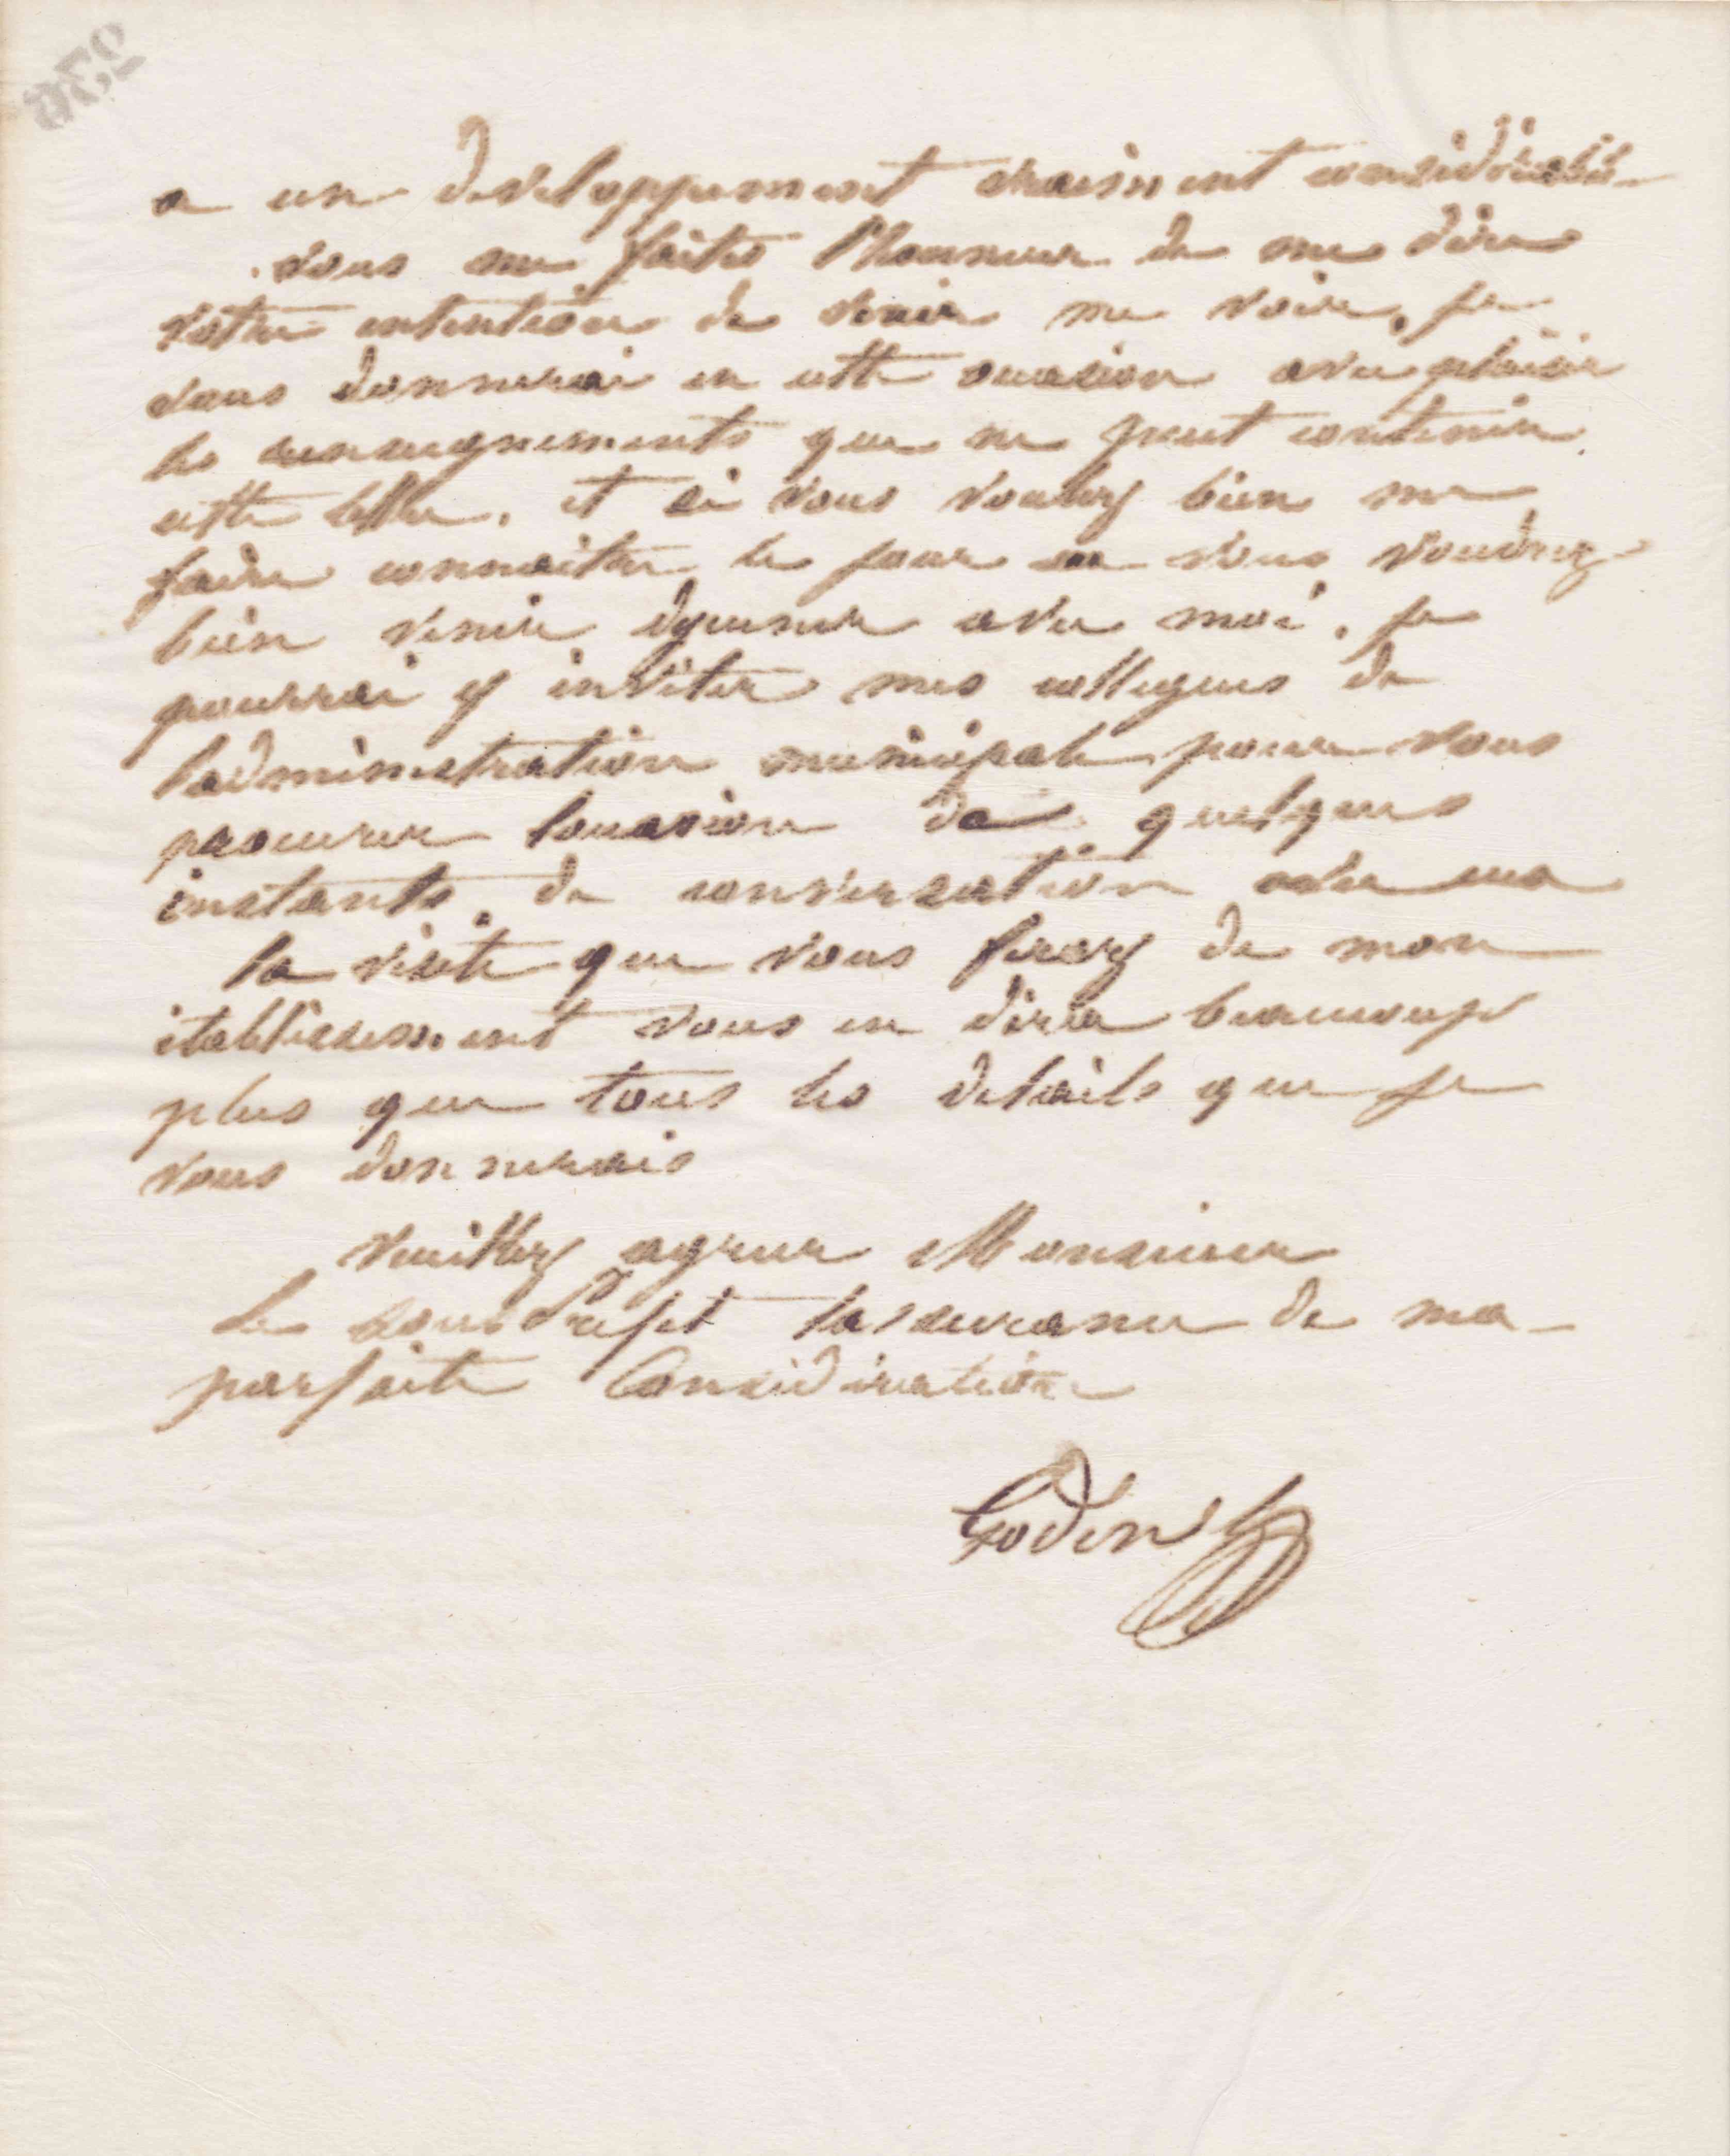 a un developpement vraiment considérable
vous me faites l'honneur de me dire
votre intention de venir me voir, je
vous donnerai en cette occasion avec plaisir
les renseignements que ne peut contenir
cette lettre. et si vous voulez bien me
faire connaitre le jour ou vous voudrez
bien venir dejeuner avec moi, je
pourrai y inviter mes collegues de
l'administration municipale pour vous
procurer l'occasion de quelques
instants de conversation avec eux
la visite que vous ferez de mon
établissement vous en dira beaucoup
plus que tous les details que je
vous donnerais
Veuillez agreer Monsieur
le sous Prefet l'assurance de ma
parfaite Considération
Godin